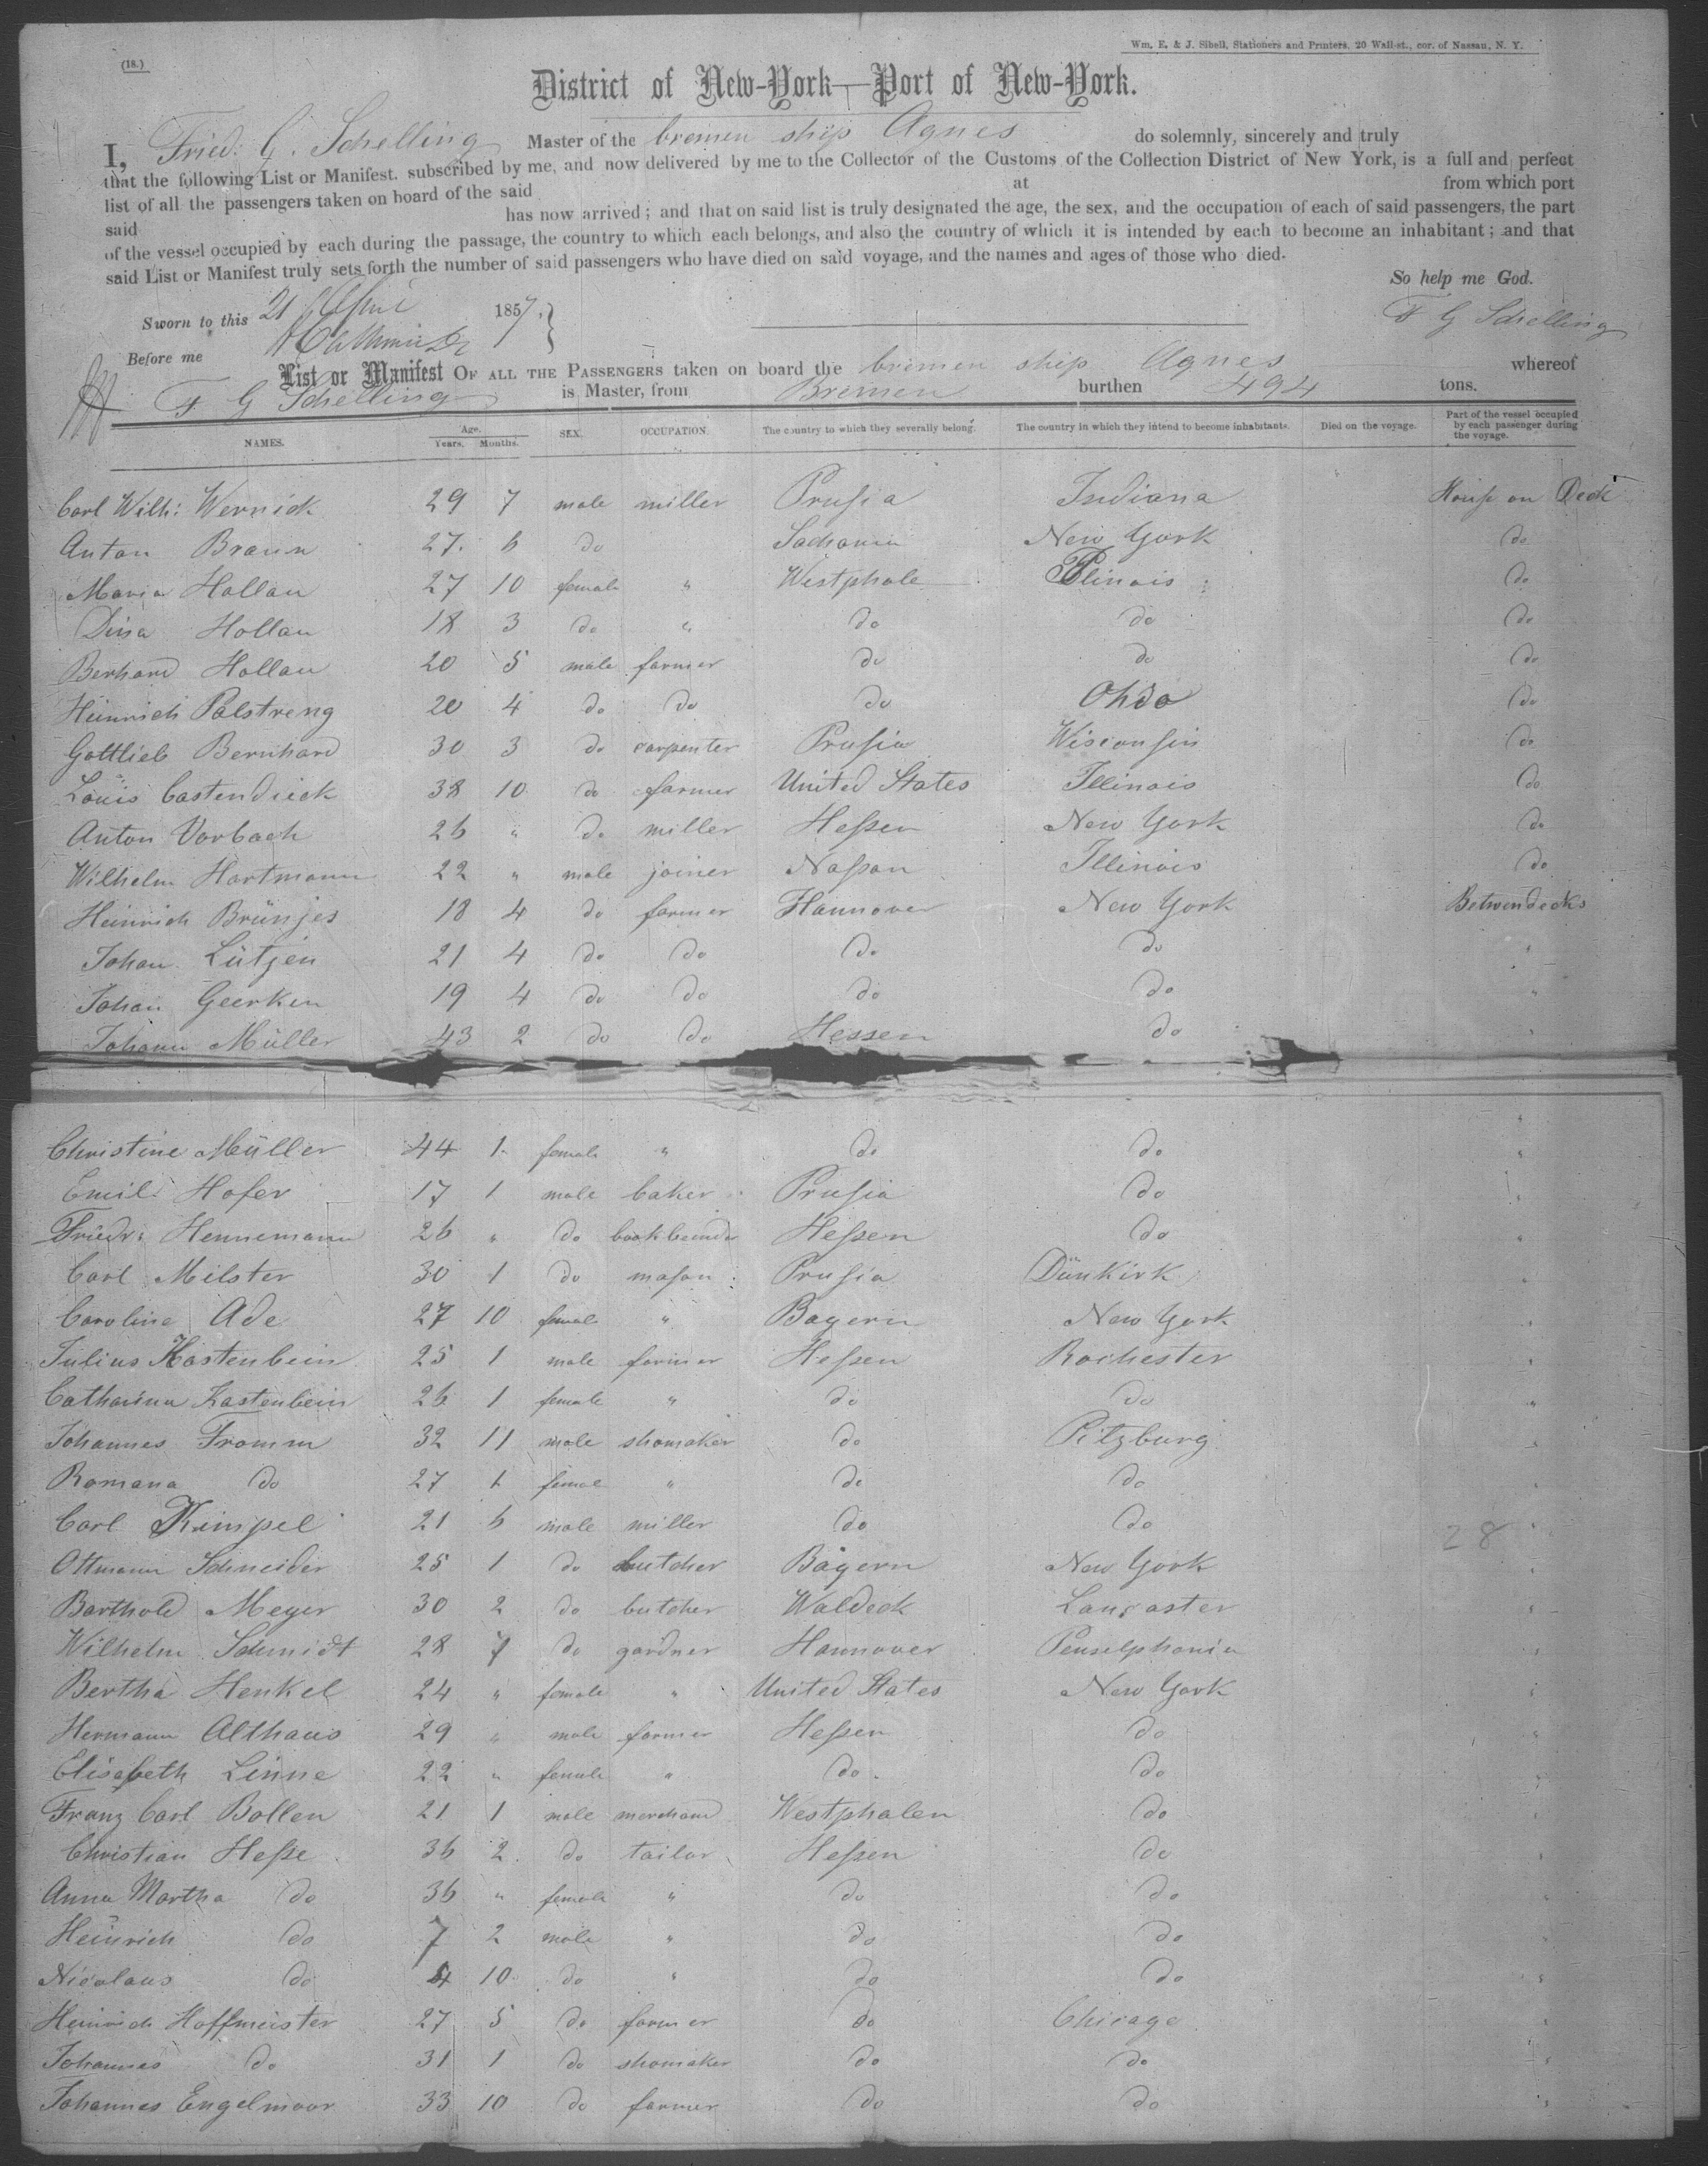 (18.)
Wm. E. & J. Sibell, Stationers and Printers, 20 Wall-st., cor. of Nassau, N. Y.
District of New-York—Port of New-York.
I, Fried: G. Schelling Master of the bremen ship Agnes do solemnly, sincerely and truly
that the following List or Manifest. subscribed by me, and now delivered by me to the Collector of the Customs of the Collection District of New York, is a full and perfect
list of all the passengers taken on board of the said at from which port
said has now arrived; and that on said list is truly designated the age, the sex, and the occupation of each of said passengers, the part
of the vessel occupied by each during the passage, the country to which each belongs, and also the country of which it is intended by each to become an inhabitant; and that
said List or Manifest truly sets forth the number of said passengers who have died on said voyage, and the names and ages of those who died.
So help me God.
Sworn to this 21 April 1857. F G Schelling
Before me
List or Manifest OF ALL THE PASSENGERS taken on board the bremen ship Agnes whereof
F G Schelling is Master, from Bremen burthen 494 tons.
NAMES. Age. Years. Months. SEX. OCCUPATION. The country to which they severally belong. The country in which they intend to become inhabitants. Died on the voyage. Part of the vessel occupied by each passenger during the voyage.
Carl Wilh: Wernick 29 7 male miller Prusia Indiana House on Deck
Anton Braun 27. 6 do New York do
Maria Hollau 27 10 female " Westphale Illinois do
Dina Hollau 18 3 do " do do do
Berhard Hollau 20 5 male farmer do do do
Heinrich Palstreng 20 4 do do do Ohio do
Gottlieb Bernhard 30 3 do carpenter Prusia Wisconsin do
Louis Castendieck 38 10 do farmer United States Illinois do
Anton Vorbach 26 " do miller Hessen New York do
Wilhelm Hartmann 22 " male joiner Nassau Illinois do
Heinrich Brünjes 18 4 do farmer Hannover New York Betwendecks
Johan Lütjen 21 4 do do do do "
Johan Geerken 19 4 do do do do "
Johann Müller 43 2 do do Hessen do "
Christine Müller 44 1 female " do do "
Emil Hofer 17 1 male baker Prusia do "
Friedr: Hennemann 26 " do Hessen do "
Carl Milster 30 1 do mason Prusia Dünkirk "
Caroline Ade 27 10 female " Bayern New York "
Julius Kastenbein 25 1 male farmer Hessen Rochester "
Catharina Kastenbein 26 1 female " do do "
Johannes Fromm 32 11 male shomaker do Pitzburg "
Romana do 27 1 femal " do do "
Carl Kimpel 21 6 male miller do do "
28
Ottmann Schneider 25 1 do butcher Bayern New York "
Barthold Meyer 30 2 do butcher Waldeck Lancaster "
Wilhelm Schmidt 28 7 do gardner Hannover Penselphania "
Bertha Henkel 24 " female " United States New York "
Hermann Althaus 29 " male farmer Hessen do "
Elisabeth Linne 22 " female " do do "
Franz Carl Bollen 21 1 male merchand Westphalen do "
Christian Hesse 36 2 do tailor Hessen do "
Anna Martha do 36 " female " do do "
Heinrich do 7 2 male " do do "
Nicolaus do 4 10 do " do do "
Heinrich Hoffmeister 27 5 do farmer do Chicago "
Johannes do 31 1 do shomaker do do "
Johannes Engelmoor 33 10 do farmer do do "